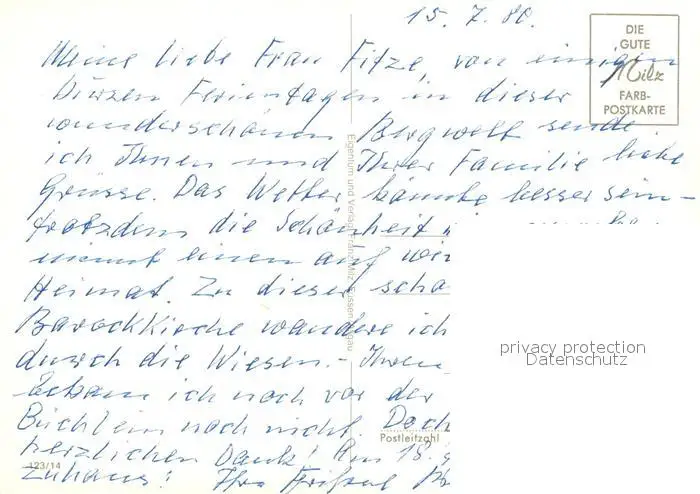 15. 7. 80.
DIE
GUTE
Milz
FARB-
POSTKARTE
Meine liebe Frau Fitze, von einigen
kurzen Ferientagen in dieser
wunderschönen Bergwelt sende
ich Ihnen und Ihrer Familie liebe
Grüsse. Das Wetter könnte besser sein -
trotzdem die Schönheit
nimmt einen auf wie
Heimat. Zu dieser schö
Barockkirche wandere ich
durch die Wiesen. - Ihren
bekam ich noch vor der
Büchlein noch nicht. Doch
herzlichen Dank! Am 18.
Zuhaus! Ihre
Eigentum und Verlag Franz Milz, Füssen
Postleitzahl
123/14
privacy protection
Datenschutz